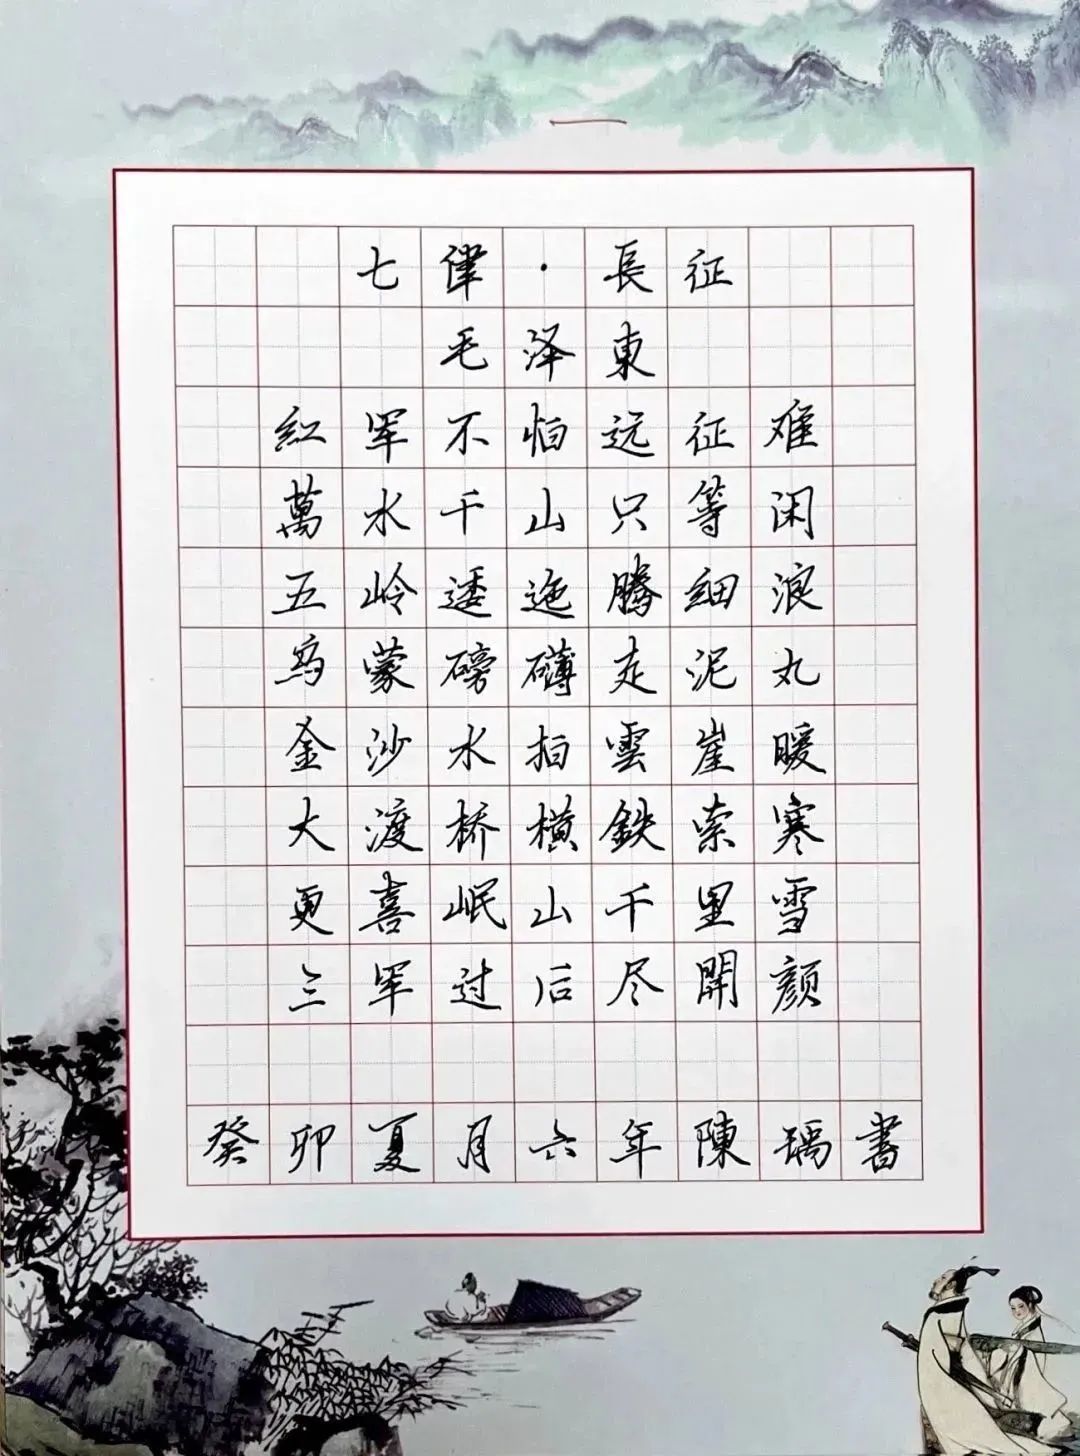 七律·長征
毛泽東
紅军不怕远征难
萬水千山只等闲
五岭逶迤腾细浪
乌蒙磅礴走泥丸
金沙水拍雲崖暖
大渡桥横鉄索寒
更喜岷山千里雪
三军过后尽開颜
癸卯夏月六年陳瑀書